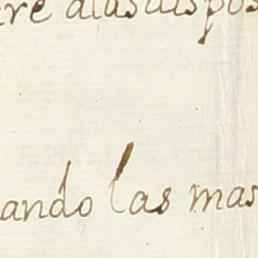 re alas dispos
ando las mas